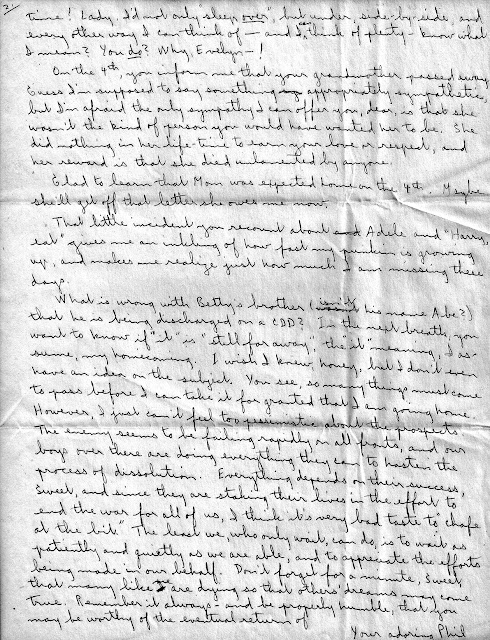 2/
time! Lady, I'd not only "sleep over", but under, side-by-side, and
every other way I can think of — and I can think of plenty - know what
I mean? You do? Why, Evelyn—!
On the 4th, you inform me that your grandmother passed away.
Guess I'm supposed to say something appropriately sympathetic,
but I'm afraid the only sympathy I can offer you, dear, is that she
wasn't the kind of person you would have wanted her to be. She
did nothing in her life-time to earn your love or respect, and
her reward is that she died unlamented by anyone.
Glad to learn that Mom was expected home on the 4th. Maybe
she'll get off that letter she owes me now.
That little incident you recount about Adele and "Harry,
eat" gives me an inkling of how fast my punkin is growing
up, and makes me realize just how much I am missing these
days.
What is wrong with Betty's brother (isn't his name Abe?)
that he is being discharged on a CDD? In the next breath, you
want to know if "it" is "still far away", the "it" meaning, I as-
sume, my homecoming. I wish I knew, honey, but I don't even
have an idea on the subject. You see, so many things must come
to pass before I can take it for granted that I am going home.
However, I just can't feel too pessimistic about the prospects.
The enemy seems to be failing rapidly on all fronts, and our
boys over there are doing everything they can to hasten the
process of dissolution. Everything depends on their success,
Sweet, and since they are staking their lives in the effort to
end the war for all of us, I think it's very bad taste to "chafe
at the bit." The least we, who only wait, can do, is to wait as
patiently and quietly as we are able, and to appreciate the efforts
being made in our behalf. Don't forget for a minute, Sweet,
that many like me are dying so that others' dreams may come
true. Remember it always - and be properly humble, that you
may be worthy of the eventual return of
Your adoring Phil